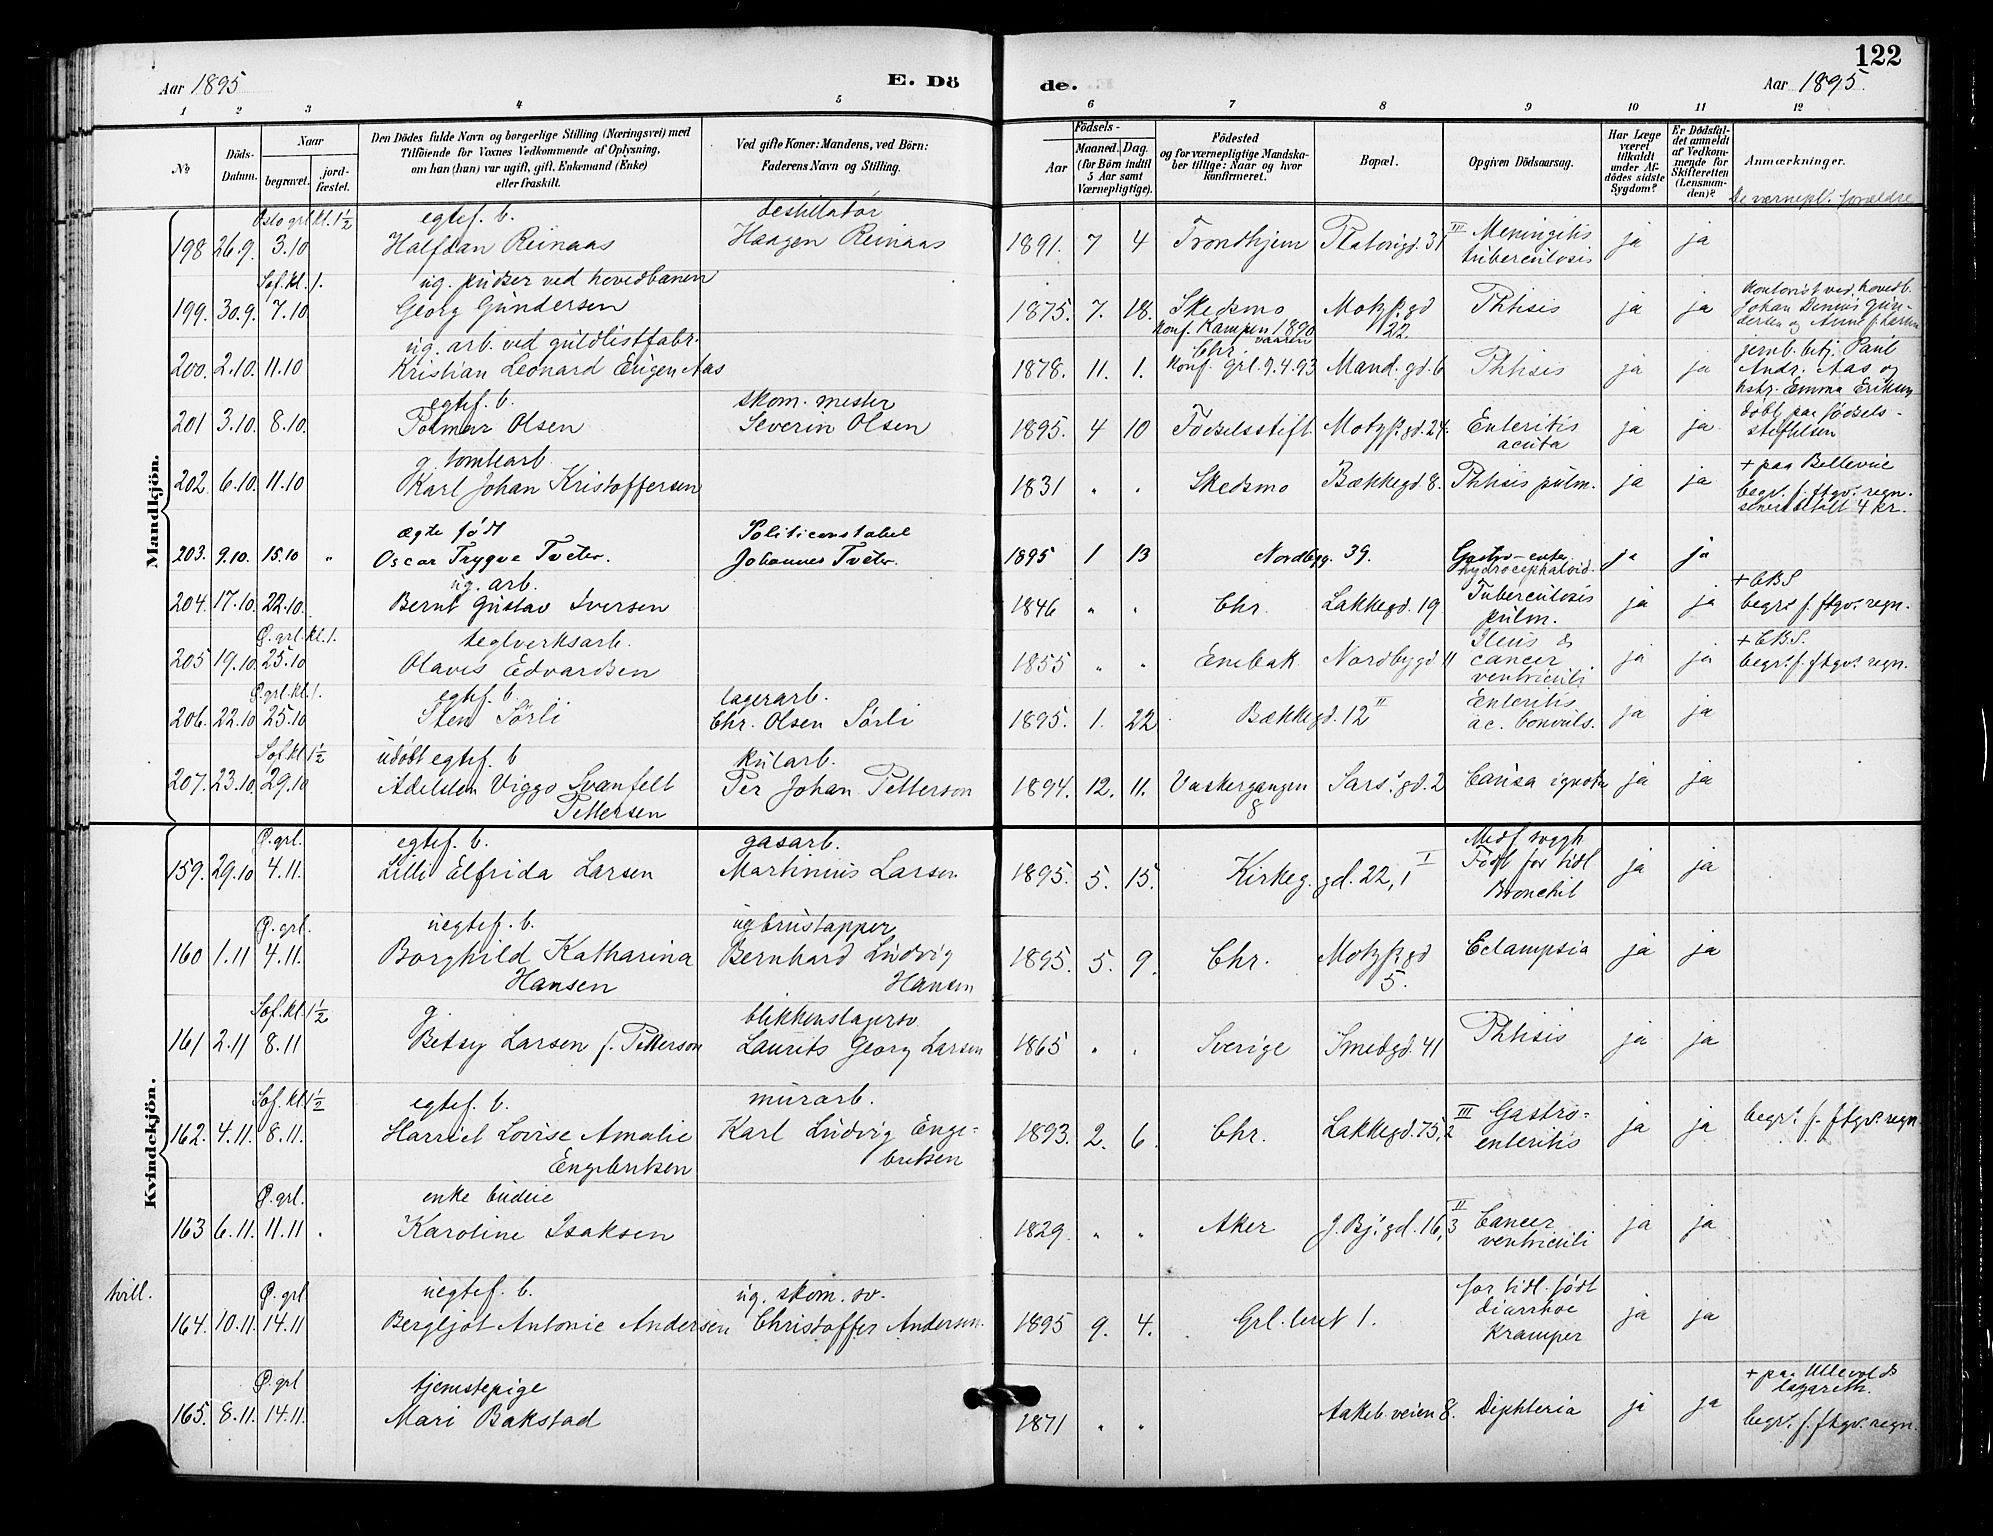 122
Aar 1895 E. Dö de. Aar 1895.
1 2 3 4 5 6 7 8 9 10 11 12
No
Döds-Datum.
Naar
begravet.
jord-fæstet.
Den Dödes fulde Navn og borgerlige Stilling (Næringsvei) med
Tilföiende for Voxnes Vedkommende af Oplysning,
om han (hun) var ugift, gift, Enkemand (Enke)
eller fraskilt.
Ved gifte Koner: Mandens, ved Börn:
Faderens Navn og Stilling.
Födsels-
Aar
Maaned. Dag.
(for Börn indtil
5 Aar samt
Værnepligtige).
Födested
og for værnepligtige Mandska-
ber tillige: Naar og hvor
konfirmeret.
Bopæl.
Opgiven Dödsaarsag.
Har Læge
været
tilkaldt
under Af-
dödes sidste
Sygdom?
Er Dödsfal-
det anmeldt
af Vedkom-
mende for
Skifteretten
(Lensman-
den)?
Anmærkninger.
De værnepl. forældre
Mandkjön.
Oslo grl. kl. 1½ egtef. b. destillatør
198 26.9. 3.10 Halfdan Reinaas Haagen Reinaas 1891. 7 4 Trondhjem Platousgd. 31 III Meningitis tuberculosis ja ja
Sof. kl. 1. ug. pudser ved hovedbanen
199. 30.9. 7.10 Georg Gundersen 1875. 7. 18. Skedsmo konf. Kampen 1890 vaaren Motzf. gd 22. Phthisis ja ja kontorist ved hovedb. Johan Gundersen og Anne
ug. arb. ved guldlistfabr.
200. 2.10. 11.10 Kristian Leonard Eugen Aas 1878. 11. 1. Chr. konf. Grl. 9.4.93 Mand. gd. 6 Phthisis ja ja jernb. betj. Paul Andr. Aas og hstr. Emma Eriksen
egtef. b. skom. mester
201 3.10. 8.10. Polmar Olsen Severin Olsen 1895. 4 10 Fødselsstift. Motzf. gd. 24. Enteritis acuta ja ja døbt paa fødselsstiftelsen
g. tomtearb.
202 6.10. 11.10 Karl Johan Kristoffersen 1831 " " Skedsmo Bækkegd 8. Phthisis pulm. ja ja + paa Bellevue begr. f. ftgv. regn. senere betalt 4 kr.
ægte født Politiconstabel
203. 9.10. 15.10 " Oscar Trygve Tveter. Johannes Tveter. 1895 1 13 Nordbyg. 39. Gastro-enter. hydrocephaloid. ja ja
ug. arb.
204. 17.10. 22.10. Bernt Gustav Iversen 1846 " " Chr. Lakkegd. 19 Tuberculosis pulm. ja ja + CBS begr. f. ftgv. regn.
Ø. grl. kl. 1. teglverksarb.
205 19.10. 25.10 Olavis Edvardsen 1855 " " Enebak Nordbygd 11 Ileus & cancer ventriculi ja ja + CBS. begr. f. ftgv. regn.
Ø. grl. kl. 1. egtef. b. lagerarb.
206. 22.10 25.10 Sten Sörli Chr. Olsen Sörli 1895. 1. 22 Bækkegd. 12 II Enteritis ac. Convuls. ja ja
Sof. kl. 1½ udøbt egtef. b kularb.
207. 23.10. 29.10 Adelsten Viggo Svanfelt Pettersen Per Johan Petterson 1894. 12. 11. Vaskergangen 8 Sars' gd. 2 Causa ignota ja ja
Kvindekjön.
Ø. grl. egtef. b. gasarb.
159. 29.10 4.11. Lilli Elfrida Larsen Martinius Larsen 1895. 5. 15. Kirkeg. gd. 22, 1 I Medf. svagh Født for tidl Bronchit ja ja
Ø. grl. uegtef. b. ug brustapper
160 1.11 4.11. Borghild Katharina Hansen Bernhard Ludvig Hansen 1895. 5. 9. Chr. Motzf. gd 5. Eclampsia ja ja
Sof. kl. 1½ g. blikkenslagersv
161 2.11 8.11 Betsy Larsen f. Petterson Laurits Georg Larsen 1865 " " Sverige Smedgd. 41 Phthisis ja ja
Sof. kl. 1½ egtef. b. murarb.
162. 4.11. 8.11. Harriet Lovise Amalie Engebriksen Karl Ludvig Engebriksen 1893. 2. 6. Chr. Lakkegd. 75, 2 III Gastro-enteritis ja ja begr. f. ftgv. regn
Ø. grl. enke budeie
163 6.11. 11.11. Karoline Isaksen 1829. " " Aker J. Bj. gd. 16, 3 II Cancer ventriculi ja ja
tvill. Ø. grl uegtef. b. ug. skom. sv.
164. 10.11. 14.11 Bergljot Antonie Andersen Christoffer Andersen. 1895 9. 4. Grl. leret 1. for tidl. født diarrhoe Kramper ja ja
Ø. grl tjenestepige
165. 8.11. 14.11. Mari Bakstad 1871 " " Aakeb. veien 8. Diphteria ja ja + paa Ullevolds lazareth. begr. f. ftgv. regn.